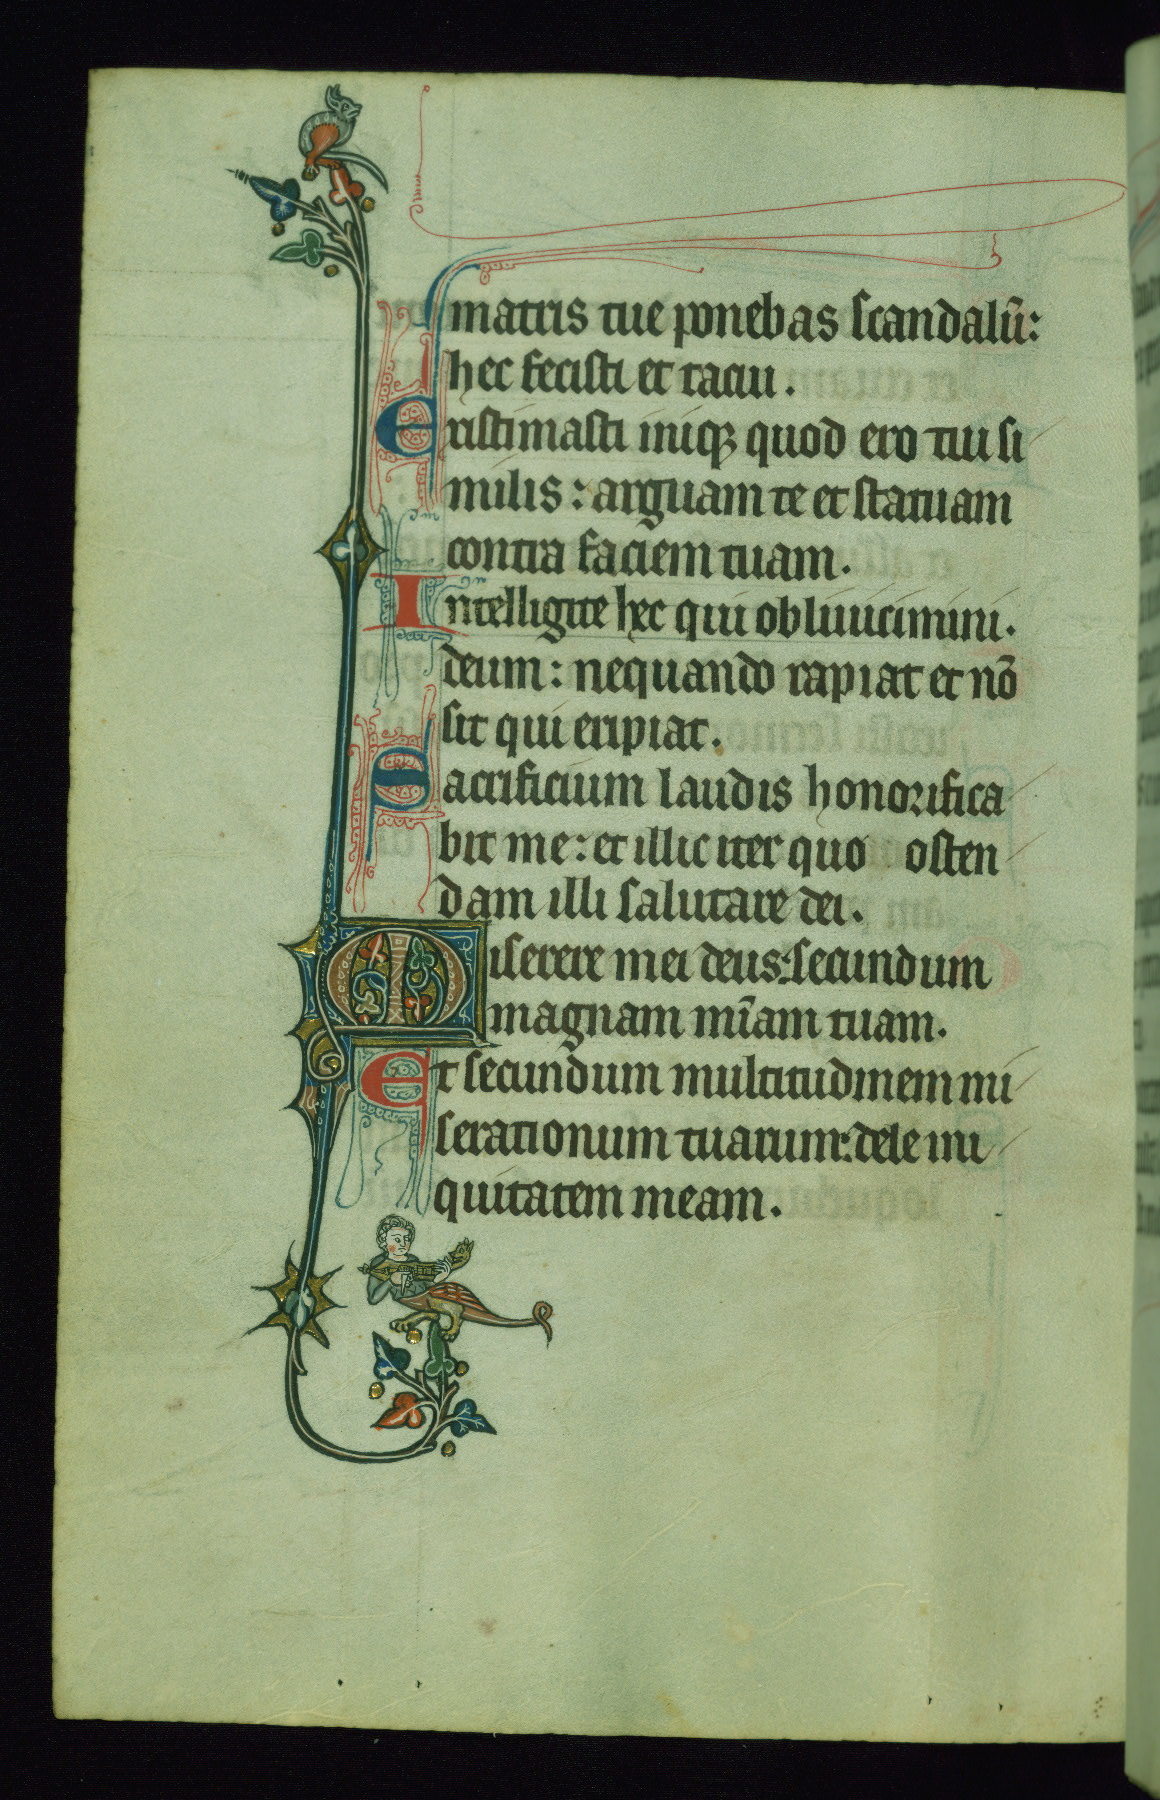 matris tue ponebas scandalū:
hec fecisti et tacui.
Existimasti iniqꝫ quod ero tui si
milis: arguam te et statuam
contra faciem tuam.
Intelligite hec qui obliuiscimini.
deum: nequando rapiat et nō
sit qui eripiat.
Sacrificium laudis honorifica
bit me: et illic iter quo osten
dam illi salutare dei.
Miserere mei deus: secundum
magnam mīam tuam.
Et secundum multitudinem mi
serationum tuarum: dele ini
quitatem meam.